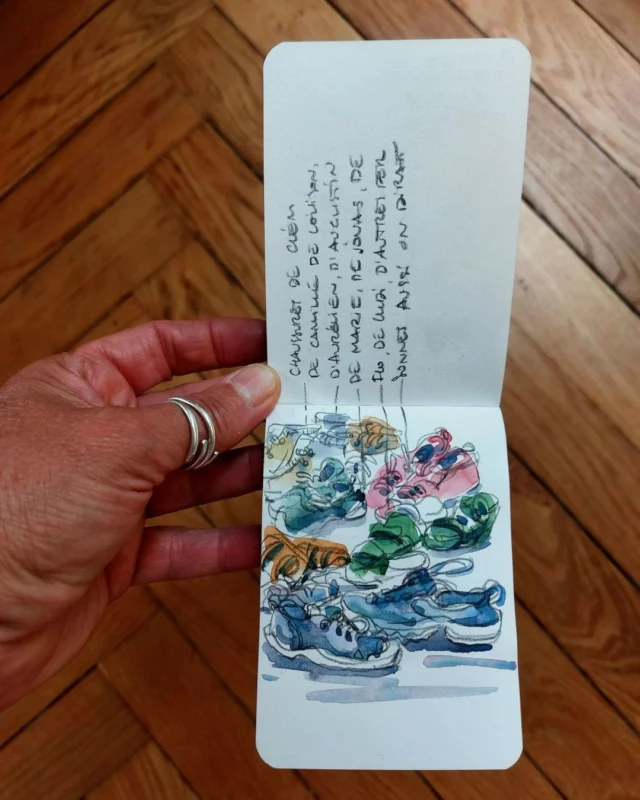 CHAUSSURES DE CLÉM
DE CAMILLE DE LOUISON,
D'AURÉLIEN, D'AUGUSTIN
DE MARIE, DE JONAS, DE
FLO, DE D'AUTRES PER
SONNES AUSSI ON DIRAIT